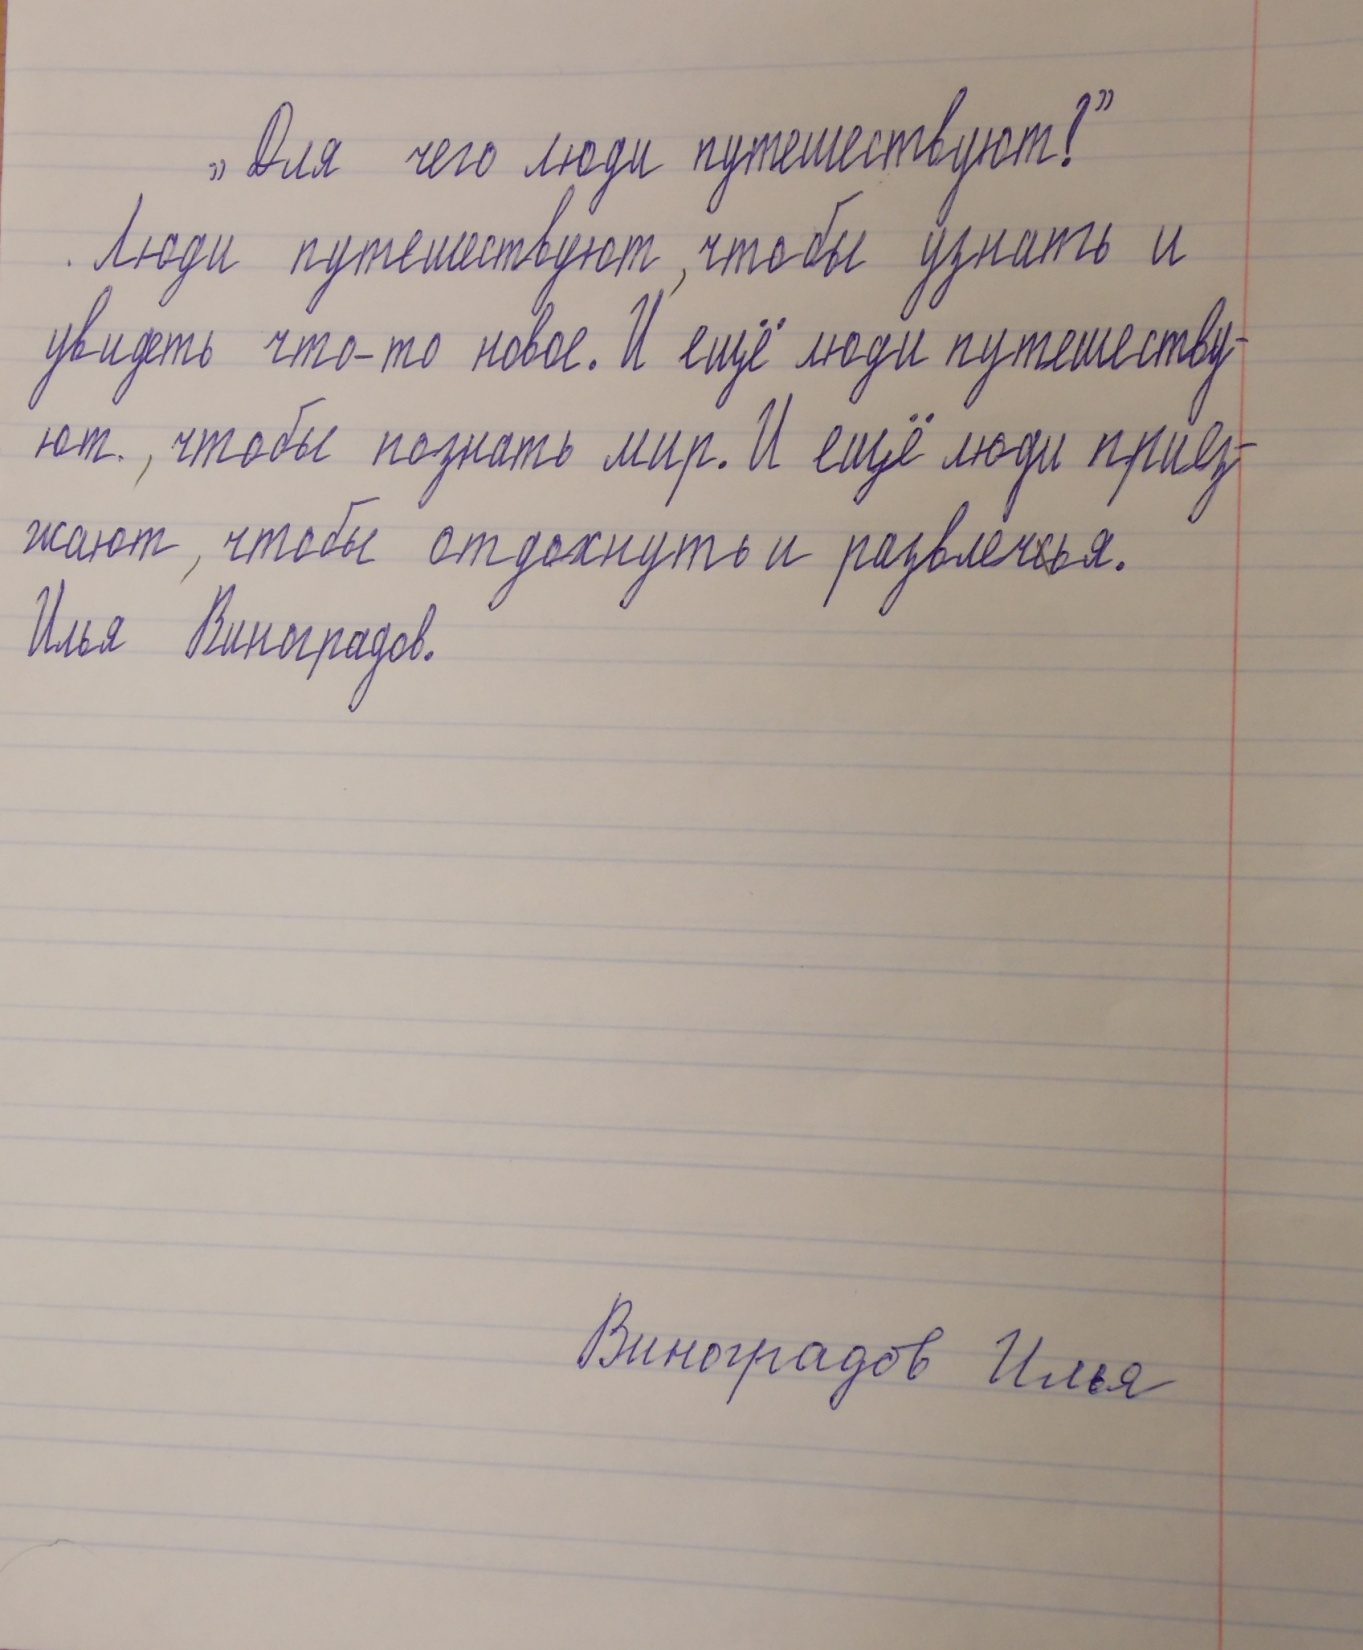 „Для чего люди путешествуют?”
Люди путешествуют, чтобы узнать и
увидеть что-то новое. И ещё люди путешеству-
ют., чтобы познать мир. И ещё люди приез-
жают, чтобы отдохнуть и развлечья.
Илья Виноградов.
Виноградов Илья